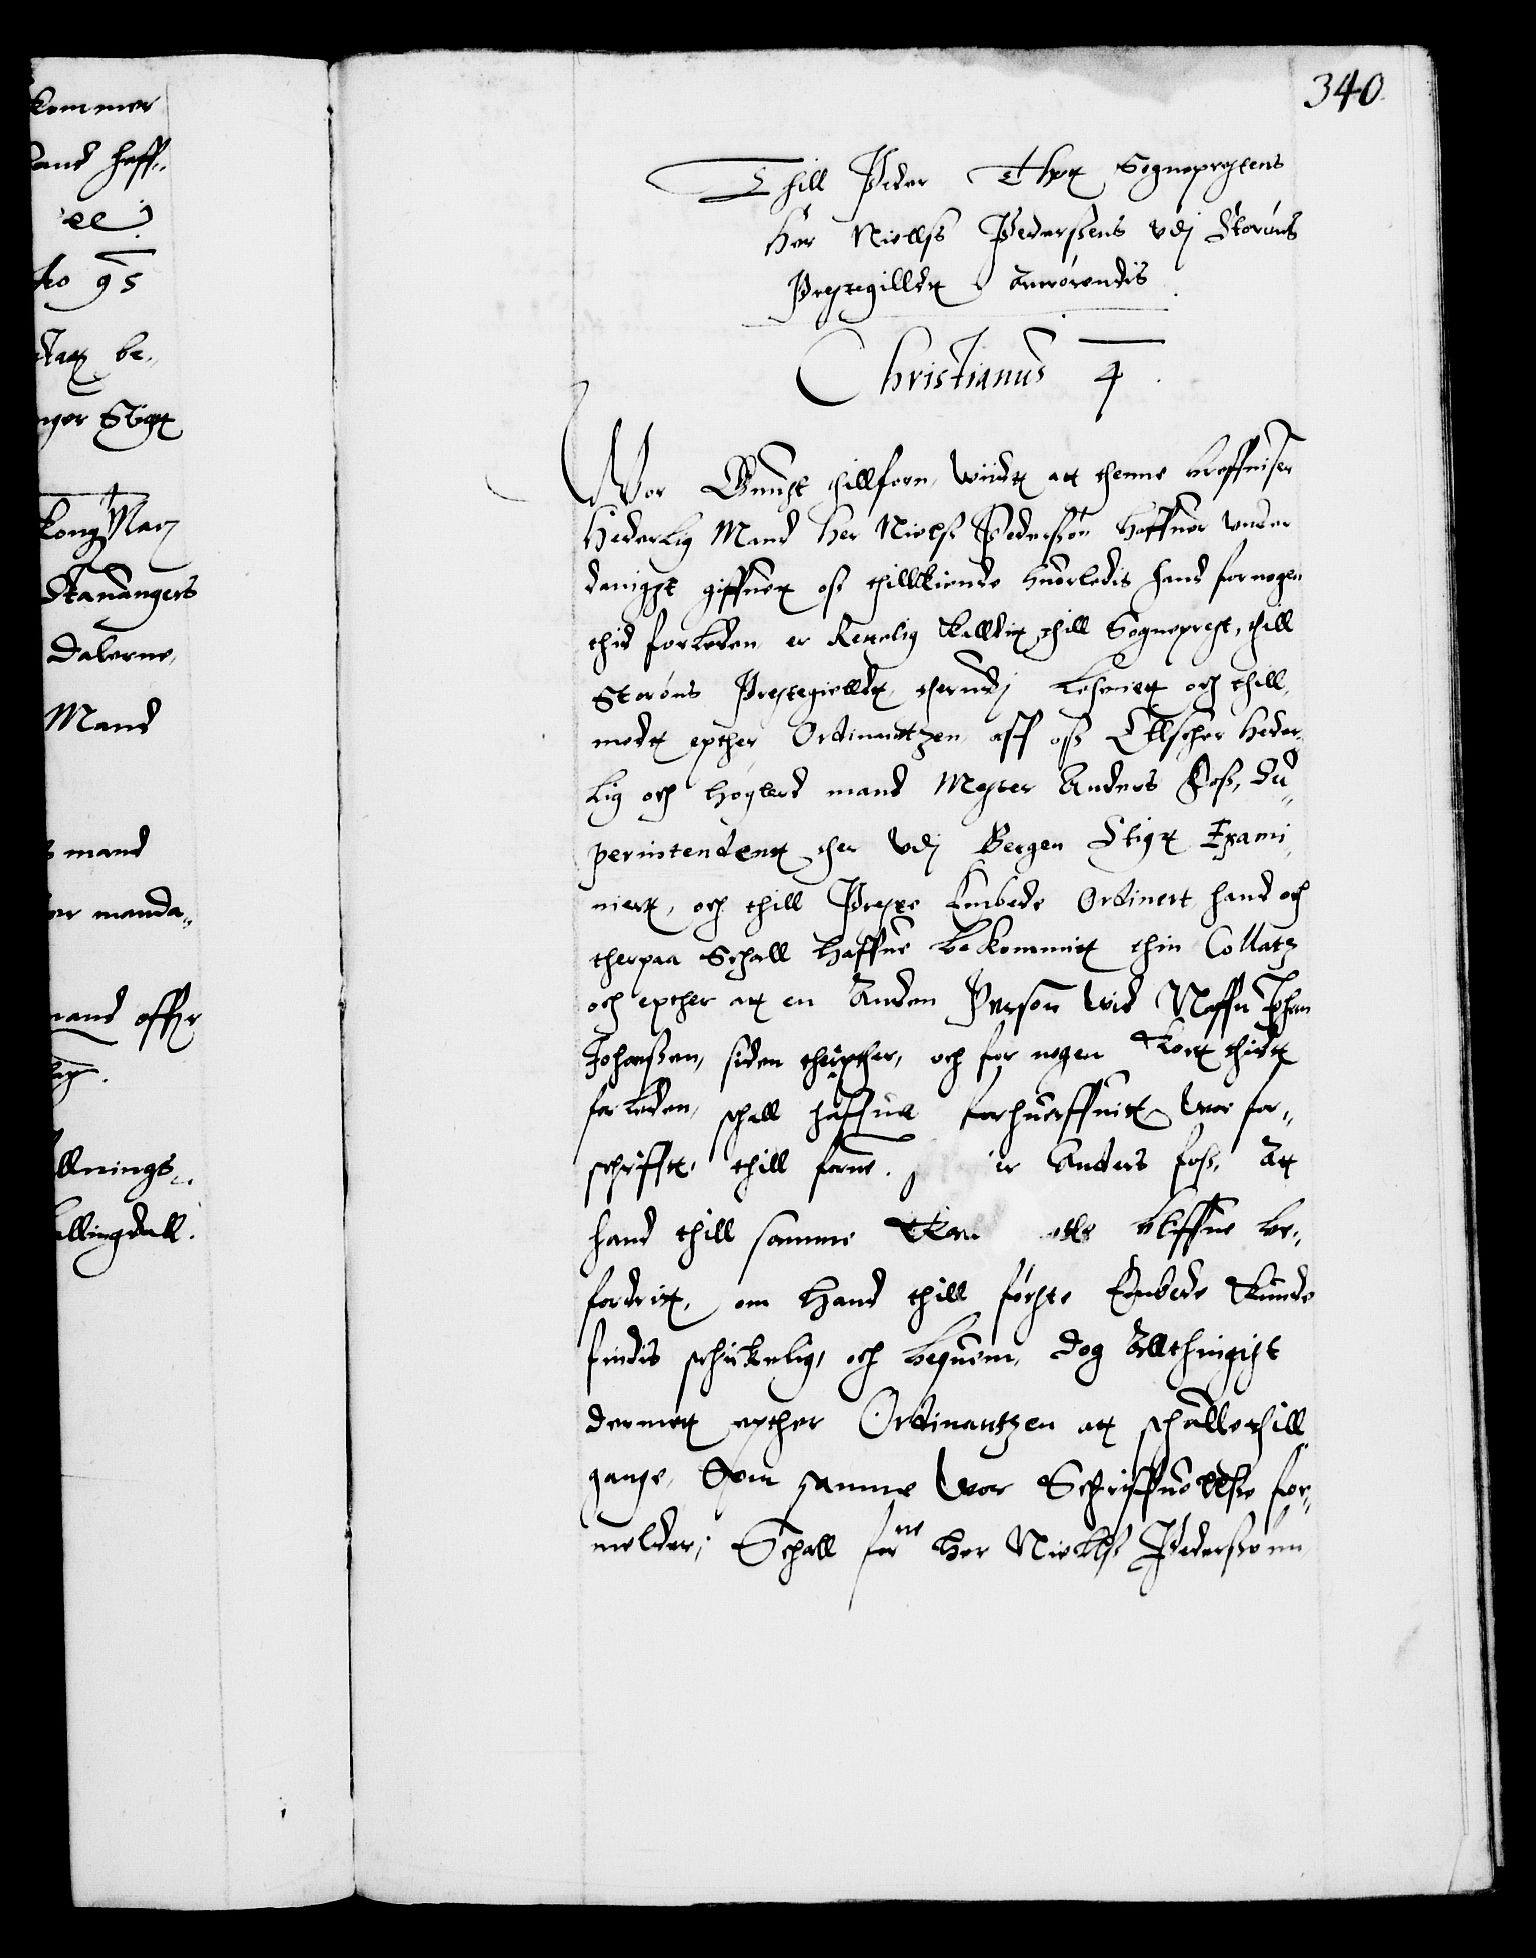 kommer
hand haff„
ee
kto 95
ttatt be„
nger Stigtt
Kong Maÿ
Stauangers
Dalerne,
Mand
mand
er manda„
mand offŭ
llnings„
allingdall.
340
Thill Peder Thott Sogneprestens
Her Niellss Pederssens Vdj Storöns
Prestegilldtt Anrörendis
Christianus 4
Wor Gunst thillforn, Wiidtt att thenne breffuiser
Hederlig Mand Her Nielss Pederssön Haffuer vnder
danigst giffuett oss thillkiende huorledis hand for nogen
thid forleden er Rettelig Kalldit thill Sogneprest, thill
Storöns Prestegielldt, therudj besmett och thill„
medtt epther Ordinantzen, aff oss Ellscher Heder„
lig och höglerd mand Mester Anders Foss, Su„
perintendentt ther Vdj Bergen Stigtt Exami„
niertt, och thill Preste Embede Ordinert hand och
therpaa Schall Haffue bekommitt thin Collatz
och epther att en Anden Person Wid Naffn Iffuer
Johanssen, siden therepther, och for nogen Kort thidt
forleden, schall haffue forhuerffuitt Wor for„
schrifft, thill forne. er Anders foss, Att
hand thill samme bliffue be„
fordrit, om Hand thill förste Embede Kunde
findis schickelig, och bequem, dog Allthingist
dermett epther Ordinantzen att schulle thill
gange, Som samme Wor Schriffuellsse for„
melder, Schall forne Her Niellss Pederssönn